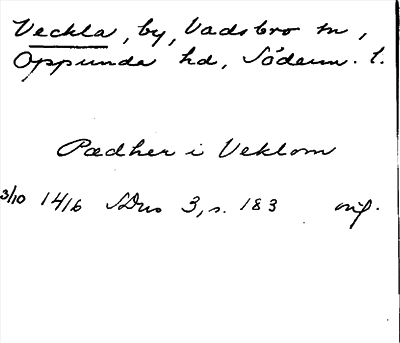 Veckla, by, Vadsbro sn,
Oppunda hd, Söderm. l.
Pædher i Veklom
3/10 1416 SDns 3, s. 183 orig.